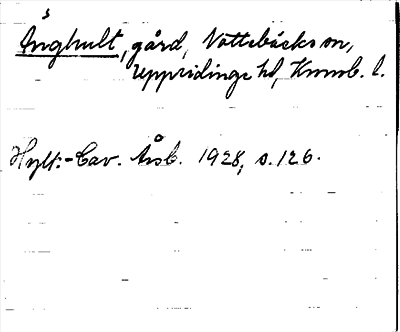 Änghult, gård, Nottebäcks sn,
Uppvidinge hd, Kronob. l.
Hylt:-Cav. Årsb. 1928, s. 126.